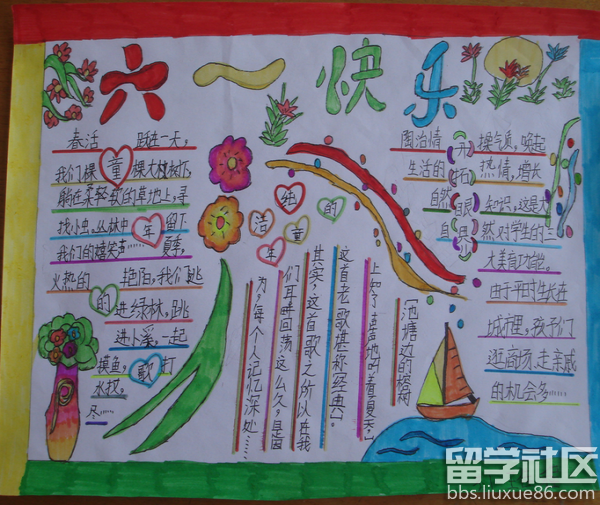 六一快乐
春活 跃进一天,
我们棵童棵大榕树下,
躺在柔轻软的草地上,寻
找小虫。丛林中年留下
我们的嬉笑声……夏季,
火热的 艳阳,我们跳
的进绿林,跳
进小溪,一起
摸鱼,歌打
水仗。
冬……
洁给的
年童
[池塘边的榕树
上,知了声声地叫着夏天,]
这首老歌堪称经典。
其实,这首歌之所以在我
们耳畔回荡这么久,是因
为,每个人记忆深处……
陶冶情开操气质,唤起
生活的拓热情,增长
自然眼知识,这是大
自界然对学生的三
大美育功能。
由于平时生长在
城市里,孩子们
逛商场,走亲戚
的机会多……
留学社区
bbs.liuxue86.com